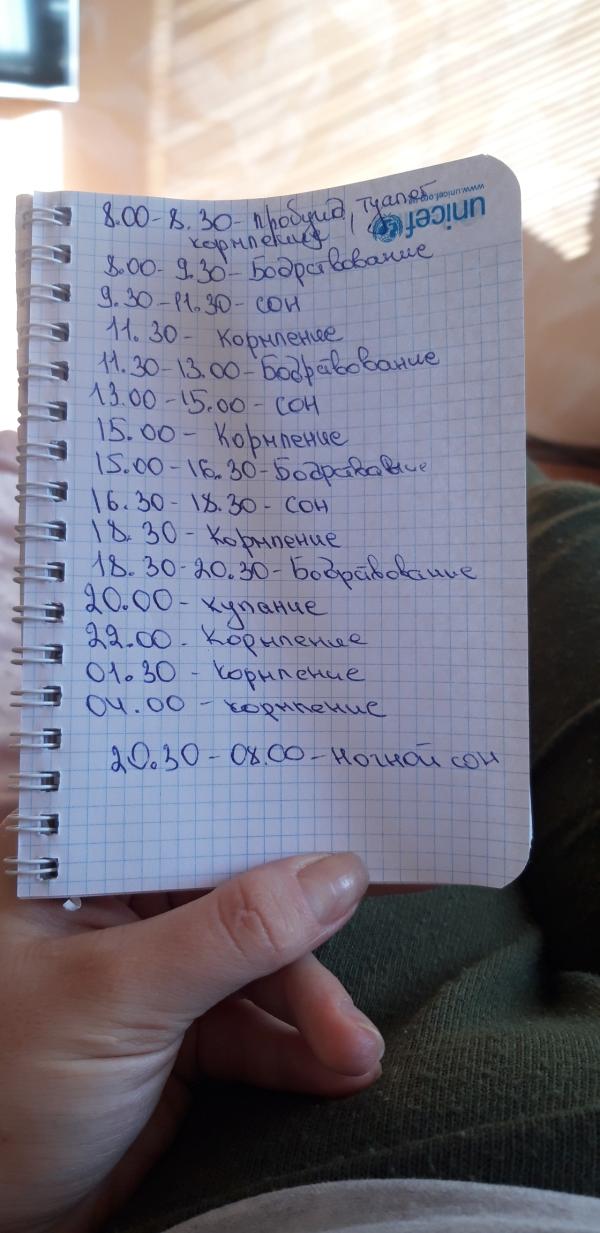 8.00 - 8.30 - пробужд, туалет
кормление
8.00 - 9.30 - Бодрствование
9.30 - 11.30 - сон
11.30 - Кормление
11.30 - 13.00 - Бодрствование
13.00 - 15.00 - сон
15.00 - Кормление
15.00 - 16.30 - Бодрствование
16.30 - 18.30 - сон
18.30 - Кормление
18.30 - 20.30 - Бодрствование
20.00 - купание
22.00 - Кормление
01.30 - кормление
04.00 - кормление
20.30 - 08.00 - Ночной сон
unicef